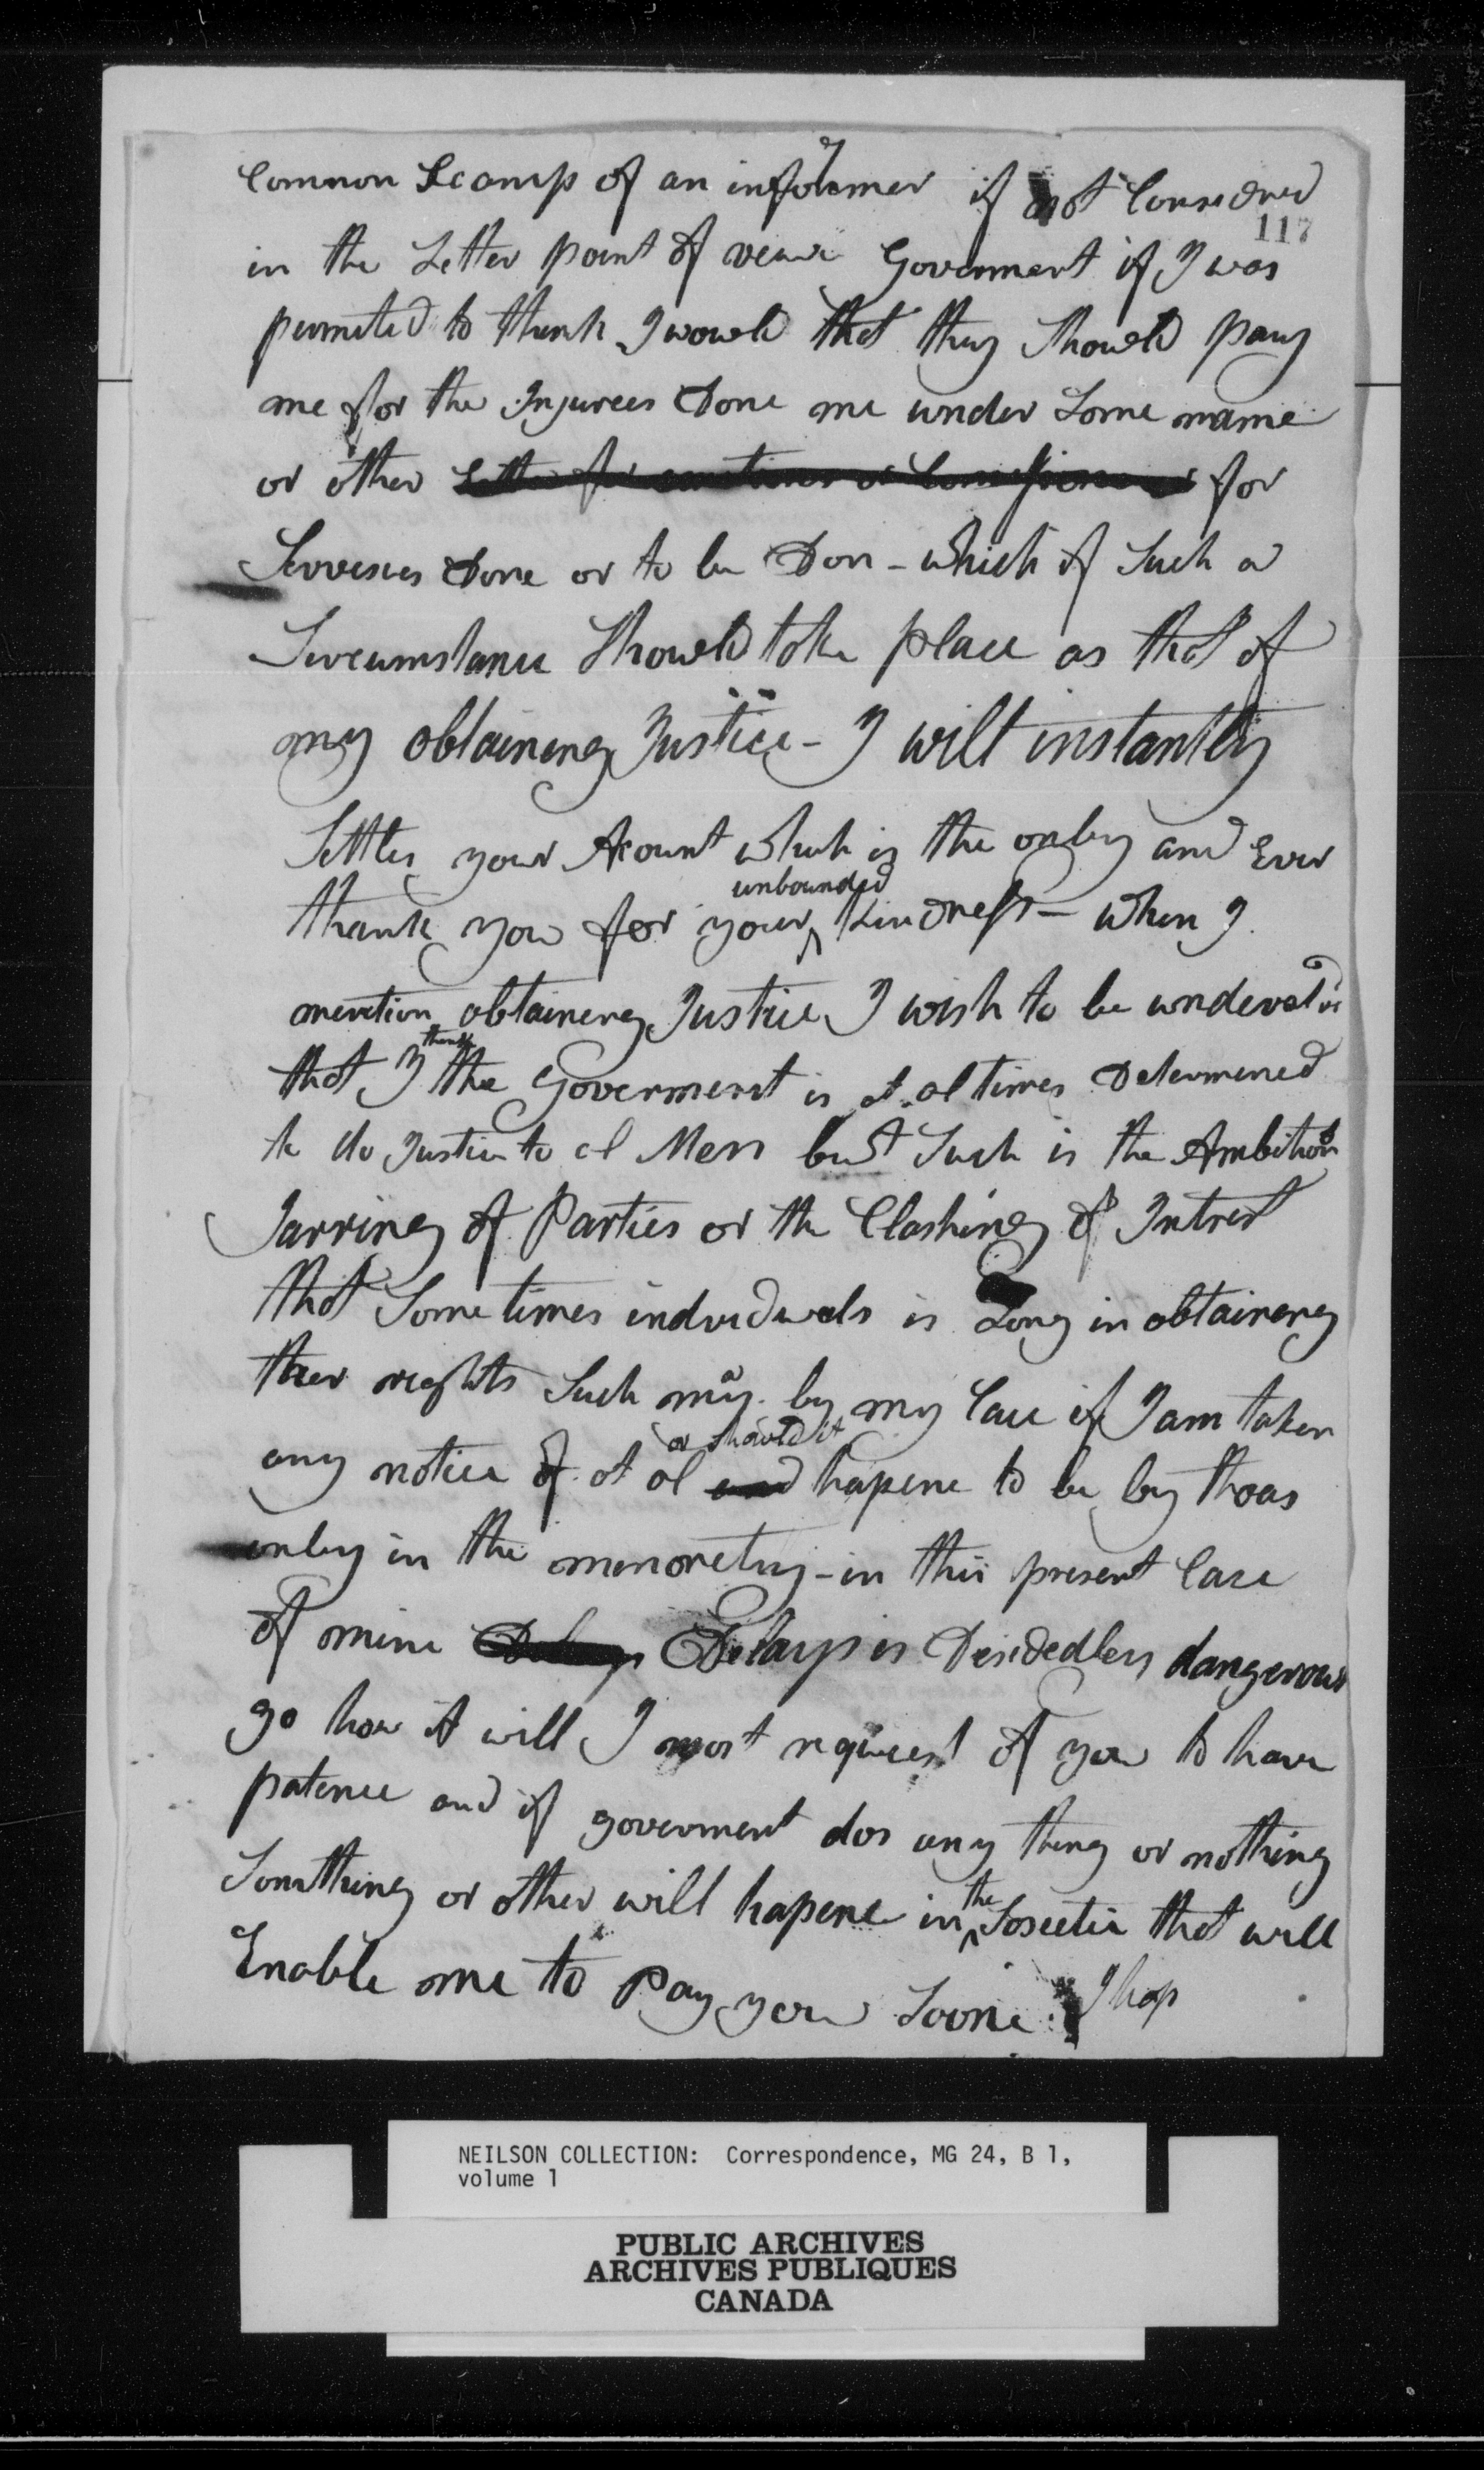 Common Scamp of an informer if not Considred
117
in the Letter point of veiw Goverment if I was
permited to think I would that they Should pay
me for the Injurees Done me under Some name
or other for
Servises Done or to be Don - which if Such a
Sircumstance Should take place as that of
my obtaining Justice - I will instantly
Settle your Acount which is the onley and Ever
unbounded
thank you for your ^ Kindness - when I
mention obtaineng Justice I wish to be
think
that I the Goverment is at al times Determened
to do Justice to al Men but Such is the Ambition
Jarring of Parties or the Clashing of Intrest
that Some times individuals is Long in obtaineng
ther reights Such may by my Case if I am taken
or should it
any notice of at al and hapene to be by thoas
onley in the menorety - in this present Case
of mine Delays Delays is Desidedley dangerous
go how it will I most request of you to have
patence and if goverment dos any thing or nothing
the
Somthing or other will hapene in ^ that will
Enable me to Pay you Soone. I hop
NEILSON COLLECTION: Correspondence, MG 24, B 1,
volume 1
PUBLIC ARCHIVES
ARCHIVES PUBLIQUES
CANADA